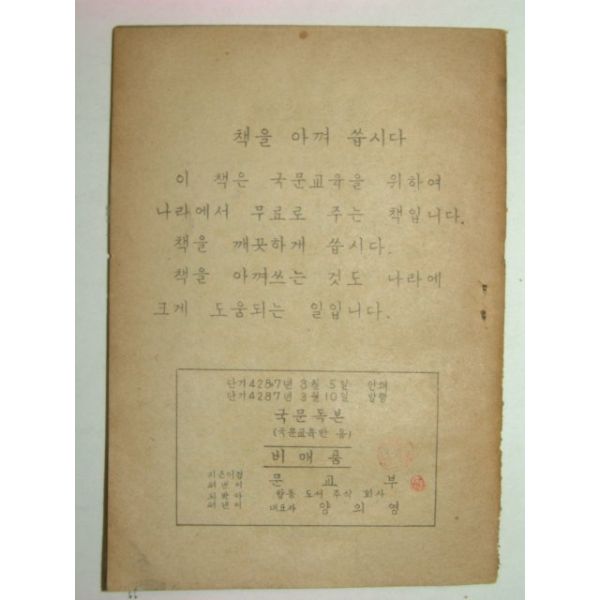 책을 아껴 씁시다
이 책은 국문교육을 위하여
나라에서 무료로 주는 책입니다.
책을 깨끗하게 씁시다.
책을 아껴쓰는 것도 나라에
크게 도움되는 일입니다.
단기4287년 3월 5일 인쇄
단기4287년 3월 10일 발행
국문독본
(국문교육반 용)
비매품
지은이겸
펴낸이 문교부
펴낸이 합동 도서 주식 회사
대표자 양의영